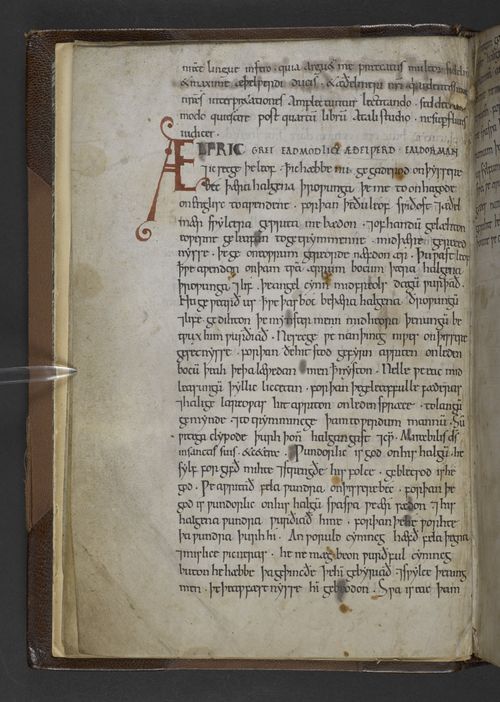 nr̄æ lingue infero · quia arguet me precatus multorum fidelium
& maxime æþelƿerdi ducis · & æðelmeri nr̄i · qui ardentissime
nr̄as interpretationes Amplectuntur lectitando · sed decreui
modo quiescere post quartū librū A tali studio · ne superfluus
iudicer ·
ÆLFRIC GRET EADMODLICE ÆÐELǷERD · EALDORMAN
⁊ ic secge þe leof · þ̄ ic hæbbe nu gegaderod on þyssere
bec þæra halgena þroƿunga þe me to onhagode
on englisc to aƿendene · forþan þe ðu leof sƿiðost ⁊ æðel
mær sƿylcera geƿrita me bædon · ⁊ of handū gelæhton
eoƿerne geleafan to getrymmenne · mid þære gereced
nysse · þe ge on eoƿrum gereorde næfdon ær · Þu ƿast leof
þ̄ ƿe aƿendon on þam tƿā ærrum bocum þæra halgena
þroƿunga ⁊ lif · þe angel cynn mid freols dagū ƿurþað ·
Nu ge ƿearð us þ̄ ƿe þas boc be þæra halgena ðroƿungū
⁊ life · gedihton þe mynster menn mid heora þenungū be
tƿux him ƿurðiað · Ne secge ƿe nan þincg niƿes on þissere
gesetnysse · forþan ðe hit stod gefyrn aƿriten on leden
bocū þeah þe þa læƿedan men þ̄ nyston · Nelle ƿe eac mid
leasungū þyllic liccetan · forþan þe geleaffulle fæderas
⁊ halige lareoƿas hit aƿriton on leden spræce · to langū
gemynde · ⁊ to trymmincge þam toƿerdum mannū · Sū
ƿitega clypode þurh þon̄ halgan gast ⁊ cƿ̄ · Mirabilis ds̄
in sanctis suis · & cetera · Ƿundorlic is god on his halgū · he
sylf forgifð mihte ⁊ strengðe his folce · gebletsod is he
god · Ƿe aƿritað fela ƿundra on þissere bec · forþan þe
god is ƿundorlic on his halgū sƿa sƿa ƿe ær sædon · ⁊ his
halgena ƿundra ƿurðiað hine · forþan þe he ƿorhte
þa ƿundra þurh hi · An ƿoruld cynincg hæfð fela þegna
⁊ mislice ƿicneras · he ne mæg beon ƿurðful cynincg
buton he hæbbe þa geþincðe þe hī gebyriað · ⁊ sƿylce þening
men · þe þeaƿfæstnysse hī gebeodon · Sƿa is eac þam